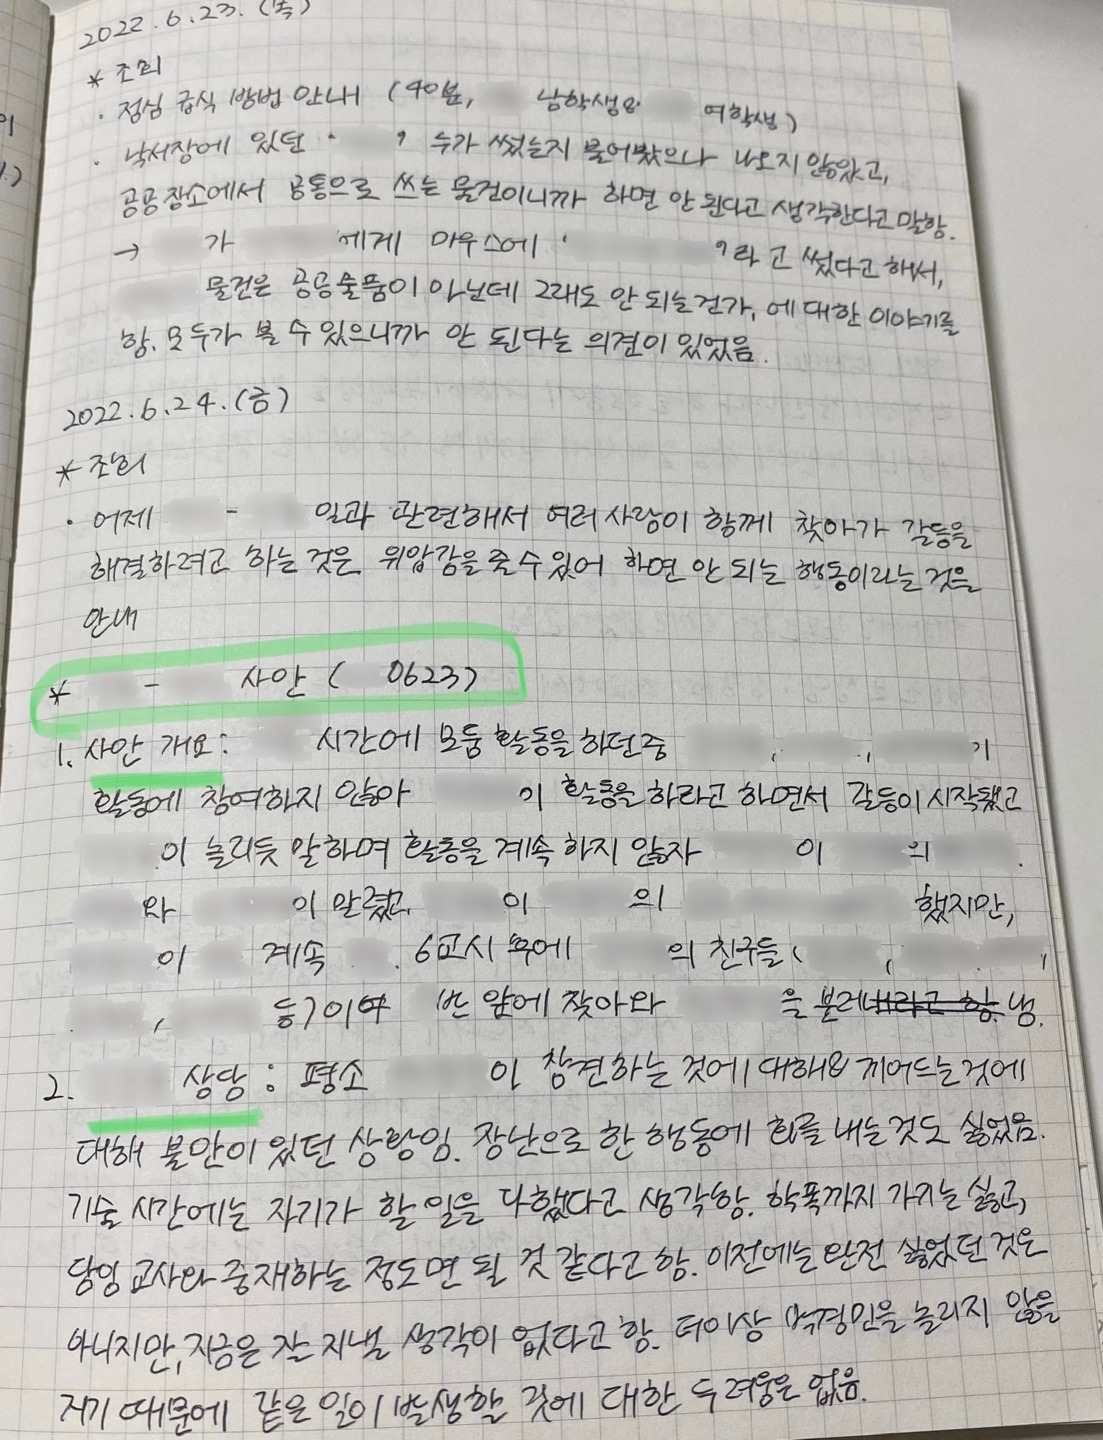 2022.6.23.(목)
* 조회
· 점심 급식 방법 안내 (40분, 남학생 & 여학생)
· 낙서장에 있던 ' ' 누가 썼는지 물어봤으나 나오지 않았고,
공공장소에서 공통으로 쓰는 물건이니까 하면 안 된다고 생각한다고 말함.
→ 가 에게 마우스에 ' '라고 썼다고 해서,
물건은 공공물품이 아닌데 그래도 안 되는건가, 에 대한 이야기를
함. 모두가 볼 수 있으니까 안 된다는 의견이 있었음.
2022.6.24.(금)
* 조회
· 어제 - 일과 관련해서 여러 사람이 함께 찾아가 갈등을
해결하려고 하는 것은 위압감을 줄 수 있어 하면 안 되는 행동이라는 것을
안내
* - 사안 ( 0623)
1. 사안 개요: 시간에 모둠 활동을 하던중 , , 기
활동에 참여하지 않아 이 활동을 하라고 하면서 갈등이 시작됐고
이 놀리듯 말하며 활동을 계속 하지 않자 이 의 .
와 이 말렸고 이 의 했지만,
이 계속 . 6교시 후에 의 친구들 ( , ,
, 등)이 반 앞에 찾아와 을 불러냄.
2. 상담 : 평소 이 참견하는 것에 대해 & 끼어드는 것에
대해 불만이 있던 상황임. 장난으로 한 행동에 화를 내는 것도 싫었음.
기술 시간에는 자기가 할 일을 다했다고 생각함. 학폭까지 가기는 싫고,
담임 교사와 중재하는 정도면 될 것 같다고 함. 이전에는 완전 싫었던 것은
아니지만, 지금은 잘 지낼 생각이 없다고 함. 더이상 을 놀리지 않을
거기 때문에 같은 일이 발생할 것에 대한 두려움은 없음.